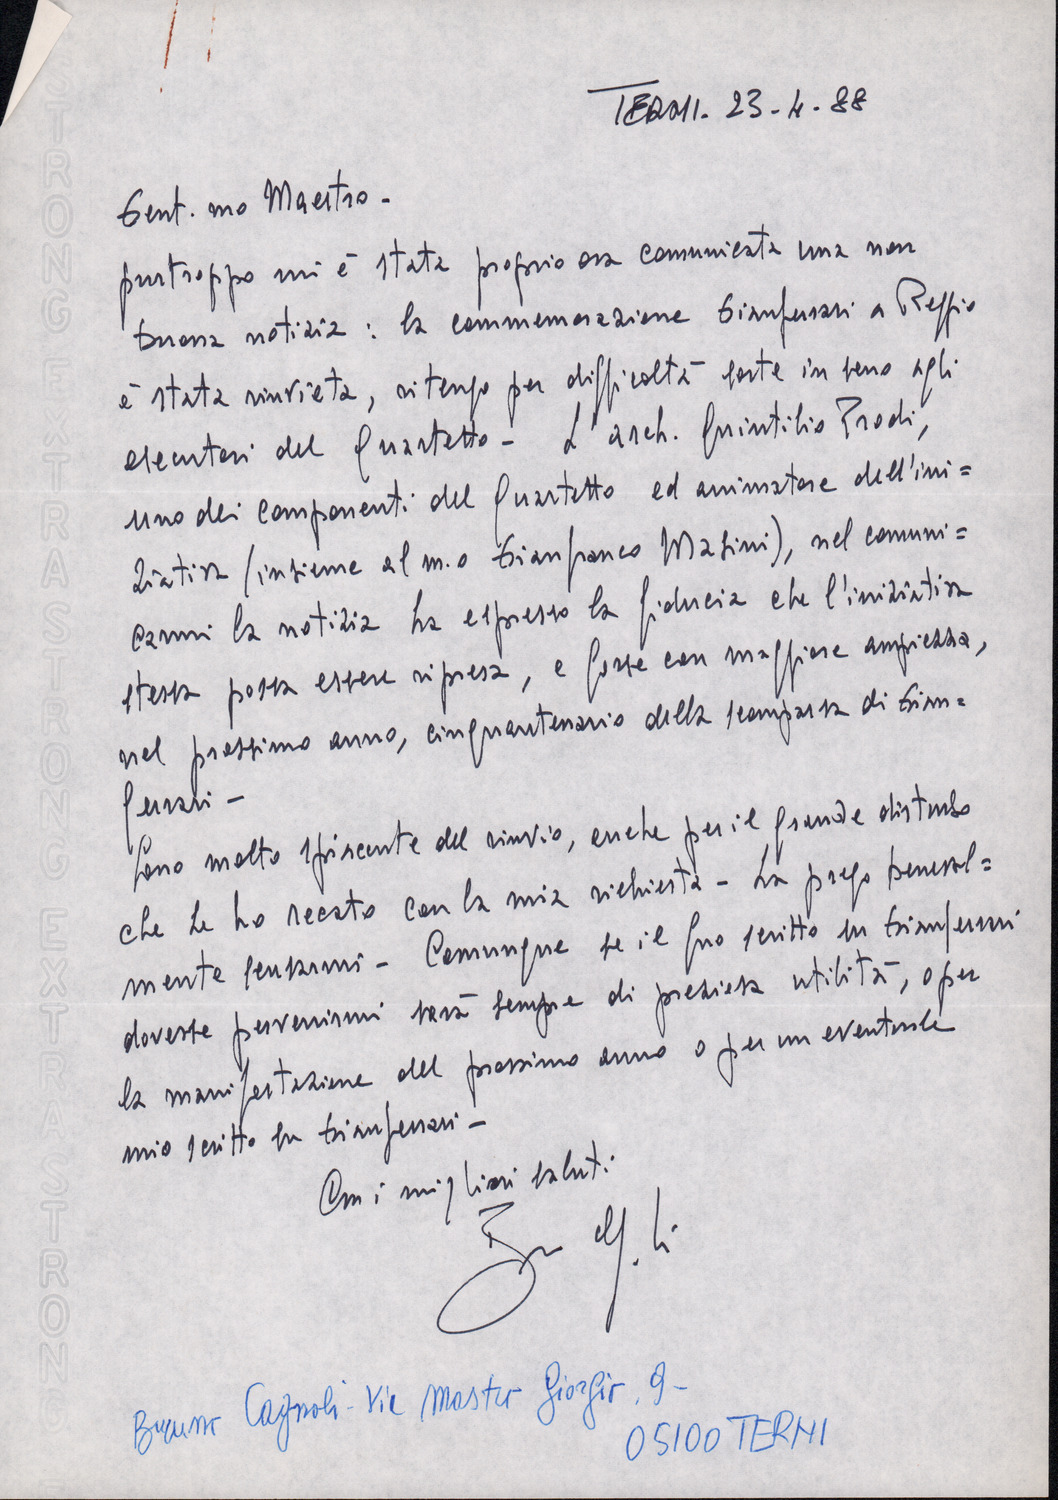 TERNI. 23-4-88
Gent.mo Maestro -
purtroppo mi è stata proprio ora comunicata una non
buona notizia: la commemorazione Gianferrari a Reggio
è stata rinviata, ritengo per difficoltà sorte in seno agli
esecutori del Quartetto - L'arch. Quintilio Prodi,
uno dei componenti del Quartetto ed animatore dell'ini=
ziativa (insieme al m.o Gianfranco Masini), nel comuni=
carmi la notizia ha espresso la fiducia che l'iniziativa
stessa possa essere ripresa, e forse con maggiore ampiezza,
nel prossimo anno, cinquantenario della scomparsa di Gian=
ferrari -
Sono molto spiacente del rinvio, anche per il grande disturbo
che Le ho recato con la mia richiesta - La prego benevol=
mente scusarmi - Comunque se il Suo scritto su Gianferrari
dovesse pervenirmi sarà sempre di preziosa utilità, o per
la manifestazione del prossimo anno o per un eventuale
mio scritto su Gianferrari -
Con i migliori saluti
Cagnoli - Via Mastro Giorgio, 9 -
05100 TERNI
STRONG EXTRASTRONG EXTRASTRONG EXTRASTRON